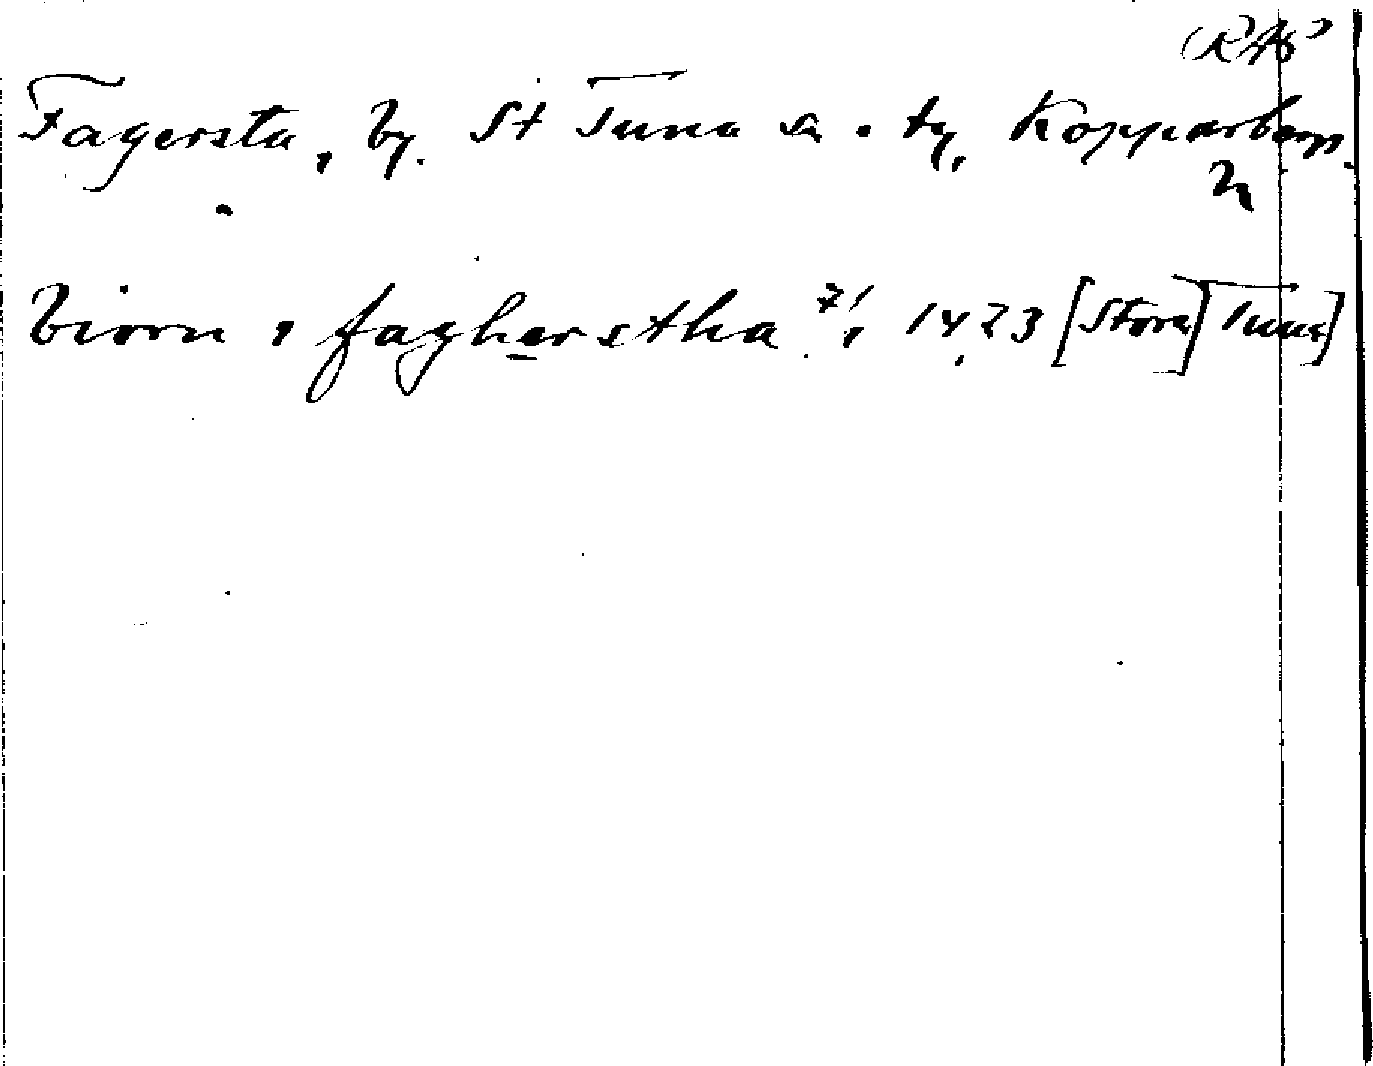 (RAö)
Fagersta, by. St Tuna sn. o. tg, Kopparbergs
Biorn i fagherstha 7/1 1423 [Stora] Tuna]